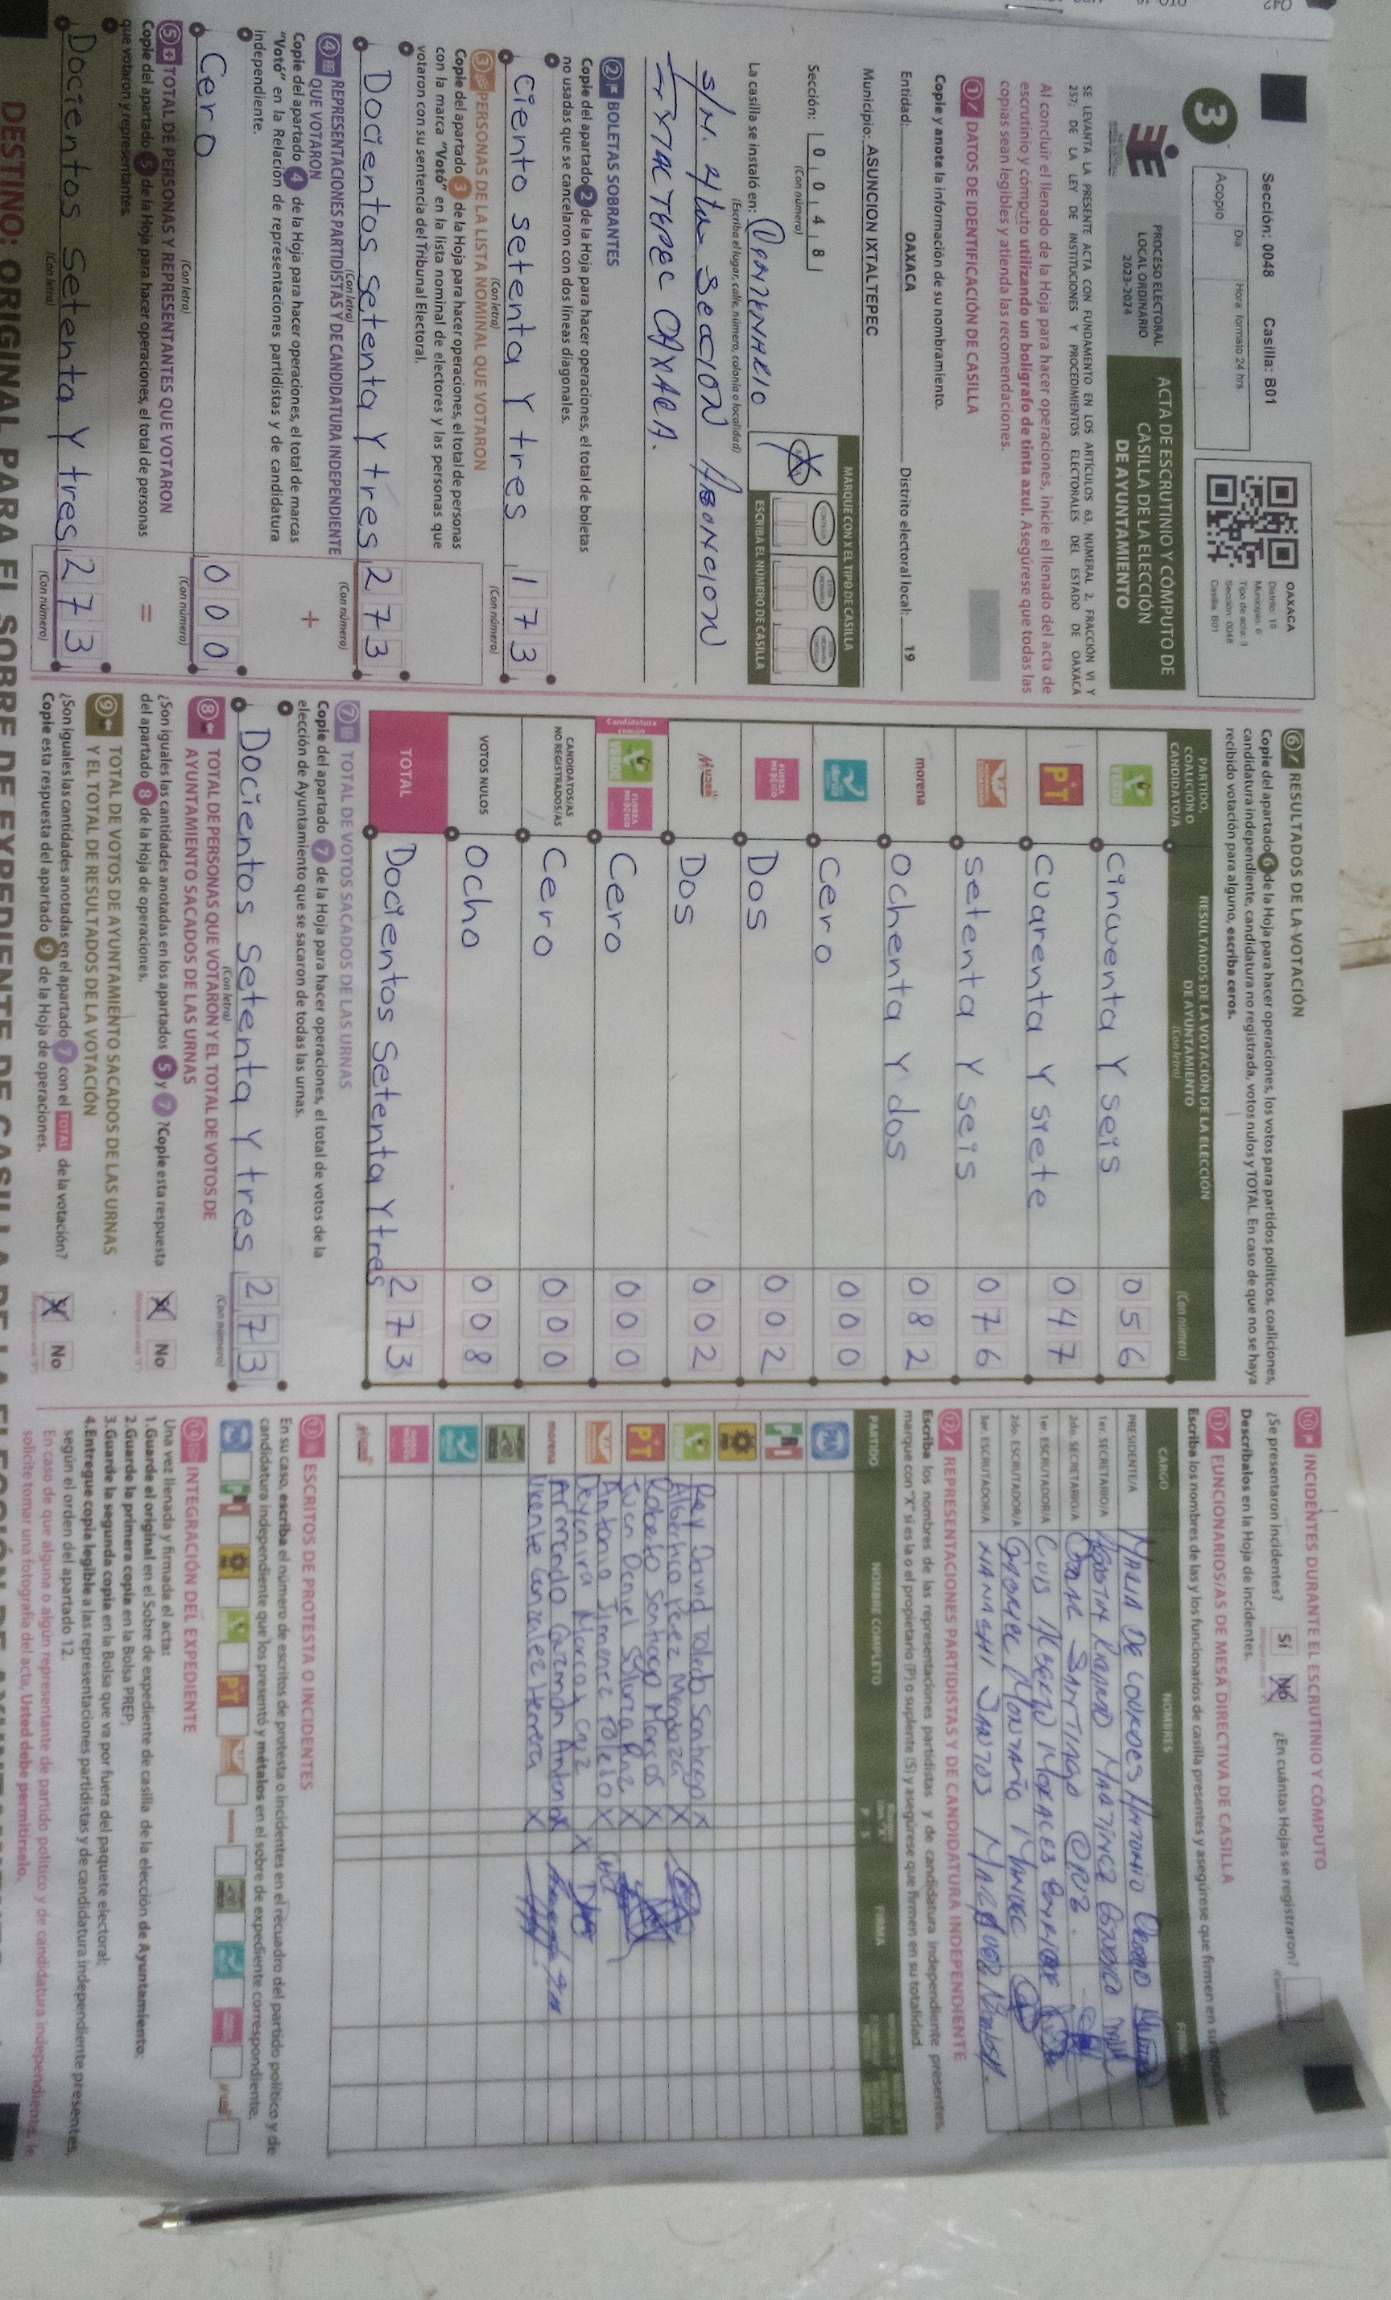 Sección: 0048 Casilla: B01
3
Día Hora: formato 24 hrs.
Acopio
OAXACA
Distrito: 19
Municipio: 6
Tipo de acta: 3
Sección: 0048
Casilla: B01
PROCESO ELECTORAL
LOCAL ORDINARIO
2023-2024
ACTA DE ESCRUTINIO Y CÓMPUTO DE
CASILLA DE LA ELECCIÓN
DE AYUNTAMIENTO
SE LEVANTA LA PRESENTE ACTA CON FUNDAMENTO EN LOS ARTÍCULOS 63, NUMERAL 2, FRACCIÓN VI Y
257, DE LA LEY DE INSTITUCIONES Y PROCEDIMIENTOS ELECTORALES DEL ESTADO DE OAXACA
Al concluir el llenado de la Hoja para hacer operaciones, inicie el llenado del acta de
escrutinio y cómputo utilizando un bolígrafo de tinta azul. Asegúrese que todas las
copias sean legibles y atienda las recomendaciones.
1 DATOS DE IDENTIFICACIÓN DE CASILLA
Copie y anote la información de su nombramiento.
Entidad: OAXACA Distrito electoral local: 19
Municipio: ASUNCION IXTALTEPEC
Sección: 0 0 4 8
(Con número)
MARQUE CON X EL TIPO DE CASILLA
ESCRIBA EL NÚMERO DE CASILLA
La casilla se instaló en:
(Escriba el lugar, calle, número, colonia o localidad)
S/N. 4ta SECCION
IXTALTEPEC OAXACA.
2 BOLETAS SOBRANTES
Copie del apartado 2 de la Hoja para hacer operaciones, el total de boletas
no usadas que se cancelaron con dos líneas diagonales.
Ciento setenta y tres 173
(Con letra) (Con número)
3 PERSONAS DE LA LISTA NOMINAL QUE VOTARON
Copie del apartado 3 de la Hoja para hacer operaciones, el total de personas
con la marca "Votó" en la lista nominal de electores y las personas que
votaron con su sentencia del Tribunal Electoral.
Docientos setenta y tres 273
(Con letra) (Con número)
4 REPRESENTACIONES PARTIDISTAS Y DE CANDIDATURA INDEPENDIENTE
QUE VOTARON
Copie del apartado 4 de la Hoja para hacer operaciones, el total de marcas
"Votó" en la Relación de representaciones partidistas y de candidatura
independiente.
+
Cero 000
(Con letra) (Con número)
5 TOTAL DE PERSONAS Y REPRESENTANTES QUE VOTARON
Copie del apartado 5 de la Hoja para hacer operaciones, el total de personas
que votaron y representantes.
=
Docientos setenta y tres 273
(Con letra) (Con número)
6 RESULTADOS DE LA VOTACIÓN
Copie del apartado 6 de la Hoja para hacer operaciones, los votos para partidos políticos, coaliciones,
candidatura independiente, candidatura no registrada, votos nulos y TOTAL. En caso de que no se haya
recibido votación para alguno, escriba ceros.
PARTIDO,
COALICIÓN O
CANDIDATO/A
RESULTADOS DE LA VOTACIÓN DE LA ELECCIÓN
DE AYUNTAMIENTO
(Con letra) (Con número)
VERDE Cincuenta y seis 056
PT Cuarenta y siete 047
Setenta y seis 076
morena Ochenta y dos 082
Cero 000
FUERZA MÉXICO Dos 002
MUJER Dos 002
Candidatura común VERDE FUERZA MÉXICO Cero 000
CANDIDATOS/AS
NO REGISTRADOS/AS Cero 000
VOTOS NULOS Ocho 008
TOTAL Docientos Setenta y tres 273
7 TOTAL DE VOTOS SACADOS DE LAS URNAS
Copie del apartado 7 de la Hoja para hacer operaciones, el total de votos de la
elección de Ayuntamiento que se sacaron de todas las urnas.
Docientos setenta y tres 273
(Con letra) (Con número)
8 TOTAL DE PERSONAS QUE VOTARON Y EL TOTAL DE VOTOS DE
AYUNTAMIENTO SACADOS DE LAS URNAS
¿Son iguales las cantidades anotadas en los apartados 5 y 7? Copie esta respuesta
del apartado 8 de la Hoja de operaciones.
Sí No
9 TOTAL DE VOTOS DE AYUNTAMIENTO SACADOS DE LAS URNAS
Y EL TOTAL DE RESULTADOS DE LA VOTACIÓN
¿Son iguales las cantidades anotadas en el apartado 7 con el TOTAL de la votación?
Copie esta respuesta del apartado 9 de la Hoja de operaciones.
Sí No
10 INCIDENTES DURANTE EL ESCRUTINIO Y CÓMPUTO
¿Se presentaron incidentes? Sí No ¿En cuántas Hojas se registraron?
Descríbalos en la Hoja de incidentes.
11 FUNCIONARIOS/AS DE MESA DIRECTIVA DE CASILLA
Escriba los nombres de las y los funcionarios de casilla presentes y asegúrese que firmen en su totalidad.
CARGO NOMBRES FIRMA
PRESIDENTE/A MARIA DE LOURDES ANTONIO
1er. SECRETARIO/A AGOSTIN MARTINEZ
2do. SECRETARIO/A SANTIAGO
1er. ESCRUTADOR/A LUIS ALBERTO MORALES ENRIQUE
2do. ESCRUTADOR/A GABRIEL MONTAÑO
3er. ESCRUTADOR/A XANAXHI SANTOS
12 REPRESENTACIONES PARTIDISTAS Y DE CANDIDATURA INDEPENDIENTE
Escriba los nombres de las representaciones partidistas y de candidatura independiente presentes,
marque con "X" si es la o el propietario (P) o suplente (S) y asegúrese que firmen en su totalidad.
PARTIDO NOMBRE COMPLETO FIRMA
PAN
PRI
VERDE Rey David Toledo Santiago X
Alberto Perez Mendoza X
PT Roberto Santiago Marcos X
Juan Daniel X
Antonio Jimenez Toledo X
Deyanira Marcos Cruz X
morena Armando Guzman Antonio X
Vicente Gonzalez Herrera X
13 ESCRITOS DE PROTESTA O INCIDENTES
En su caso, escriba el número de escritos de protesta o incidentes en el recuadro del partido político y de
candidatura independiente que los presentó y métalos en el sobre de expediente correspondiente.
14 INTEGRACIÓN DEL EXPEDIENTE
Una vez llenada y firmada el acta:
1. Guarde el original en el Sobre de expediente de casilla de la elección de Ayuntamiento;
2. Guarde la primera copia en la Bolsa PREP;
3. Guarde la segunda copia en la Bolsa que va por fuera del paquete electoral;
4. Entregue copia legible a las representaciones partidistas y de candidatura independiente presentes,
según el orden del apartado 12.
En caso de que alguna o algún representante de partido político y de candidatura independiente, le
solicite tomar una fotografía del acta, Usted debe permitírselo.
DESTINO: ORIGINAL PARA EL SOBRE DE EXPEDIENTE DE CASILLA DE LA ELECCIÓN DE